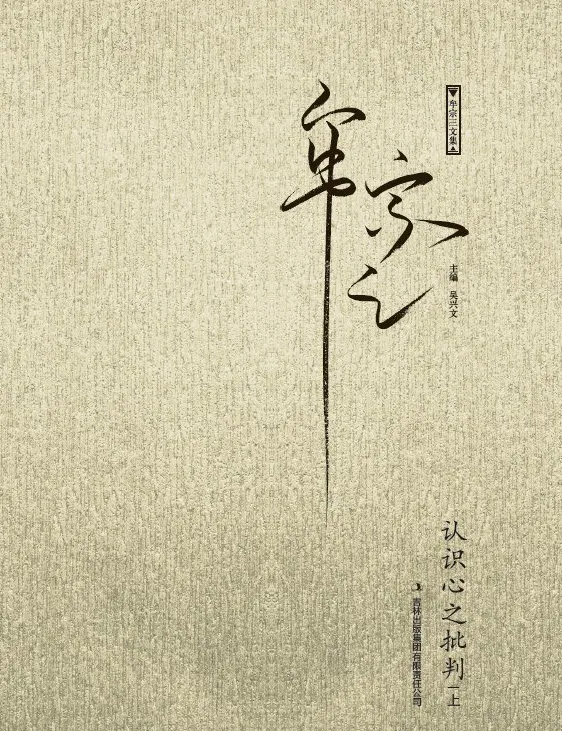 牟宗三
牟宗三文集
主编 吴兴文
认识心之批判 上
吉林出版集团有限责任公司